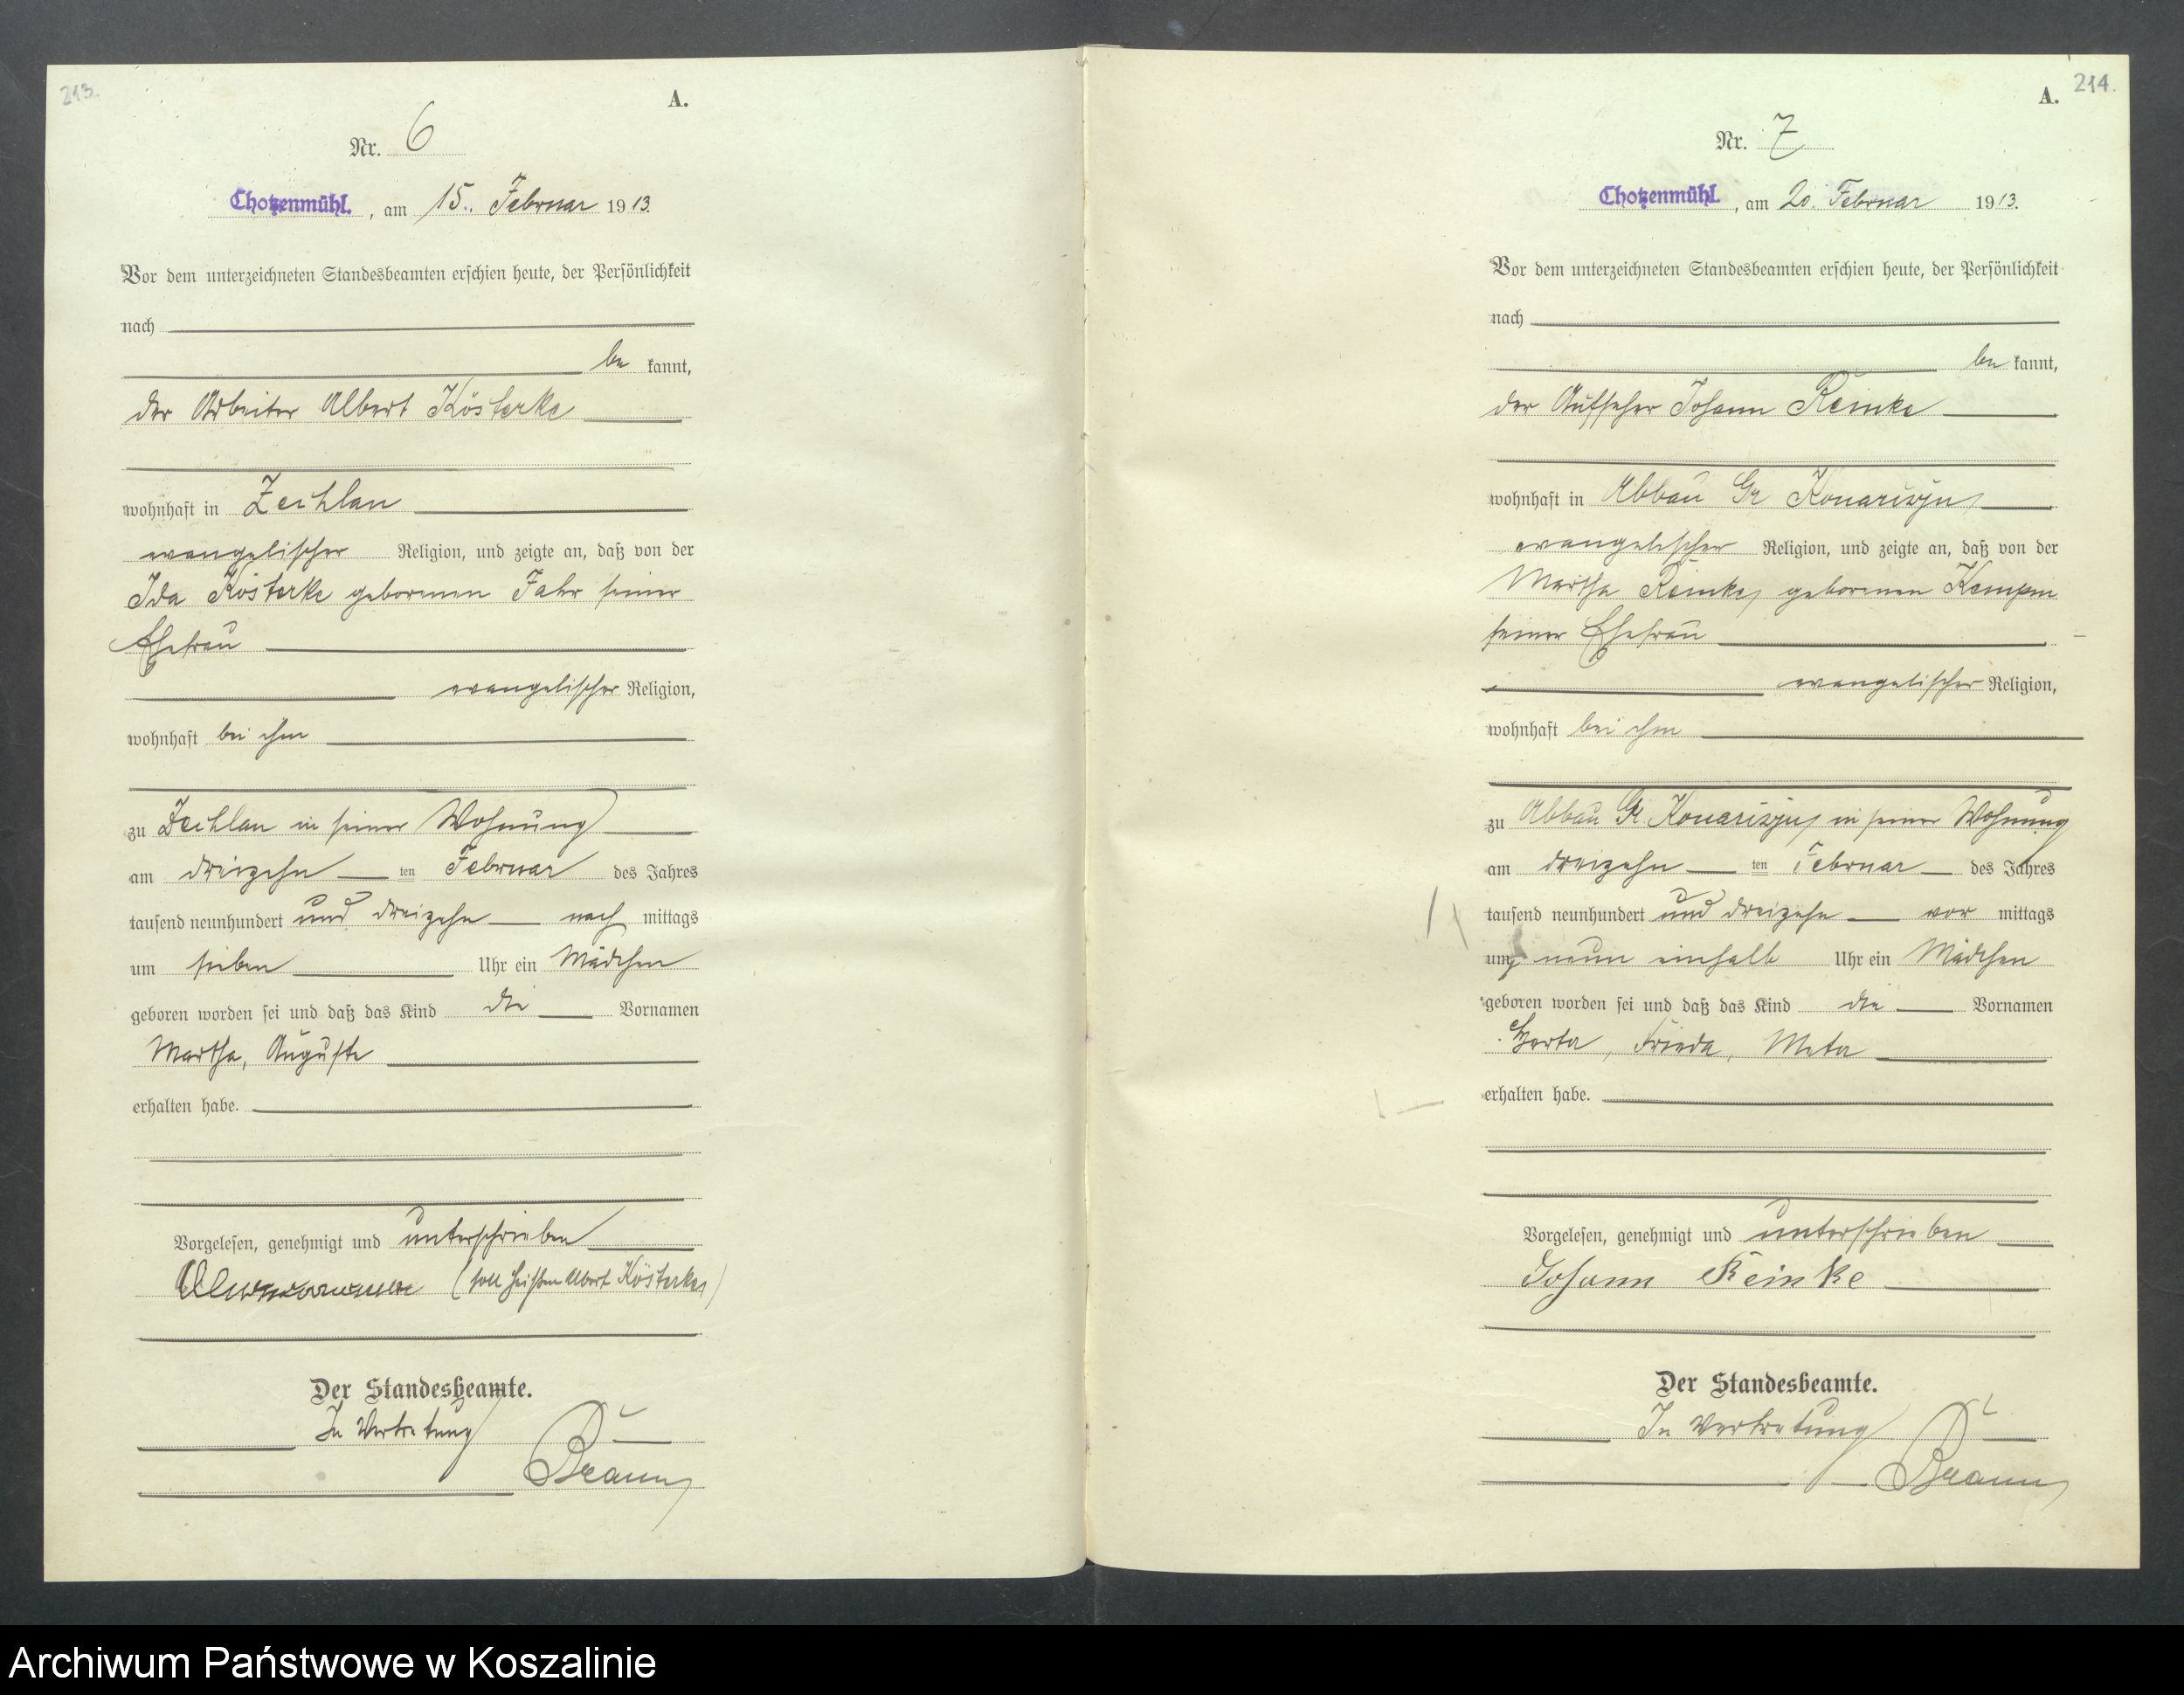 213.
A.
Nr. 6
Chotzenmühl. , am 15. Februar 1913.
Vor dem unterzeichneten Standesbeamten erschien heute, der Persönlichkeit
nach
be kannt,
der Arbeiter Albert Kösterke
wohnhaft in Zechlau
evangelischer Religion, und zeigte an, daß von der
Ida Kösterke geborenen Fahr seiner
Ehefrau
evangelischer Religion,
wohnhaft bei ihm
zu Zechlau in seiner Wohnung
am dreizehn ten Februar des Jahres
tausend neunhundert und dreizehn nach mittags
um sieben Uhr ein Mädchen
geboren worden sei und daß das Kind die Vornamen
Martha, Auguste
erhalten habe.
Vorgelesen, genehmigt und unterschrieben
(soll heißen Albert Kösterke)
Der Standesbeamte.
In Vertretung
Braun
214.
A.
Nr. 7
Chotzenmühl. , am 20. Februar 1913.
Vor dem unterzeichneten Standesbeamten erschien heute, der Persönlichkeit
nach
be kannt,
der Aufseher Johann Reinke
wohnhaft in Abbau Gr
evangelischer Religion, und zeigte an, daß von der
Martha Reinke, geborenen
seiner Ehefrau
evangelischer Religion,
wohnhaft bei ihm
zu Abbau Gr. in seiner Wohnung
am dreizehn ten Februar des Jahres
tausend neunhundert und dreizehn vor mittags
um neun einhalb Uhr ein Mädchen
geboren worden sei und daß das Kind die Vornamen
Herta, Frieda, Meta
erhalten habe.
Vorgelesen, genehmigt und unterschrieben
Johann Reinke
Der Standesbeamte.
In Vertretung
Braun
Archiwum Państwowe w Koszalinie